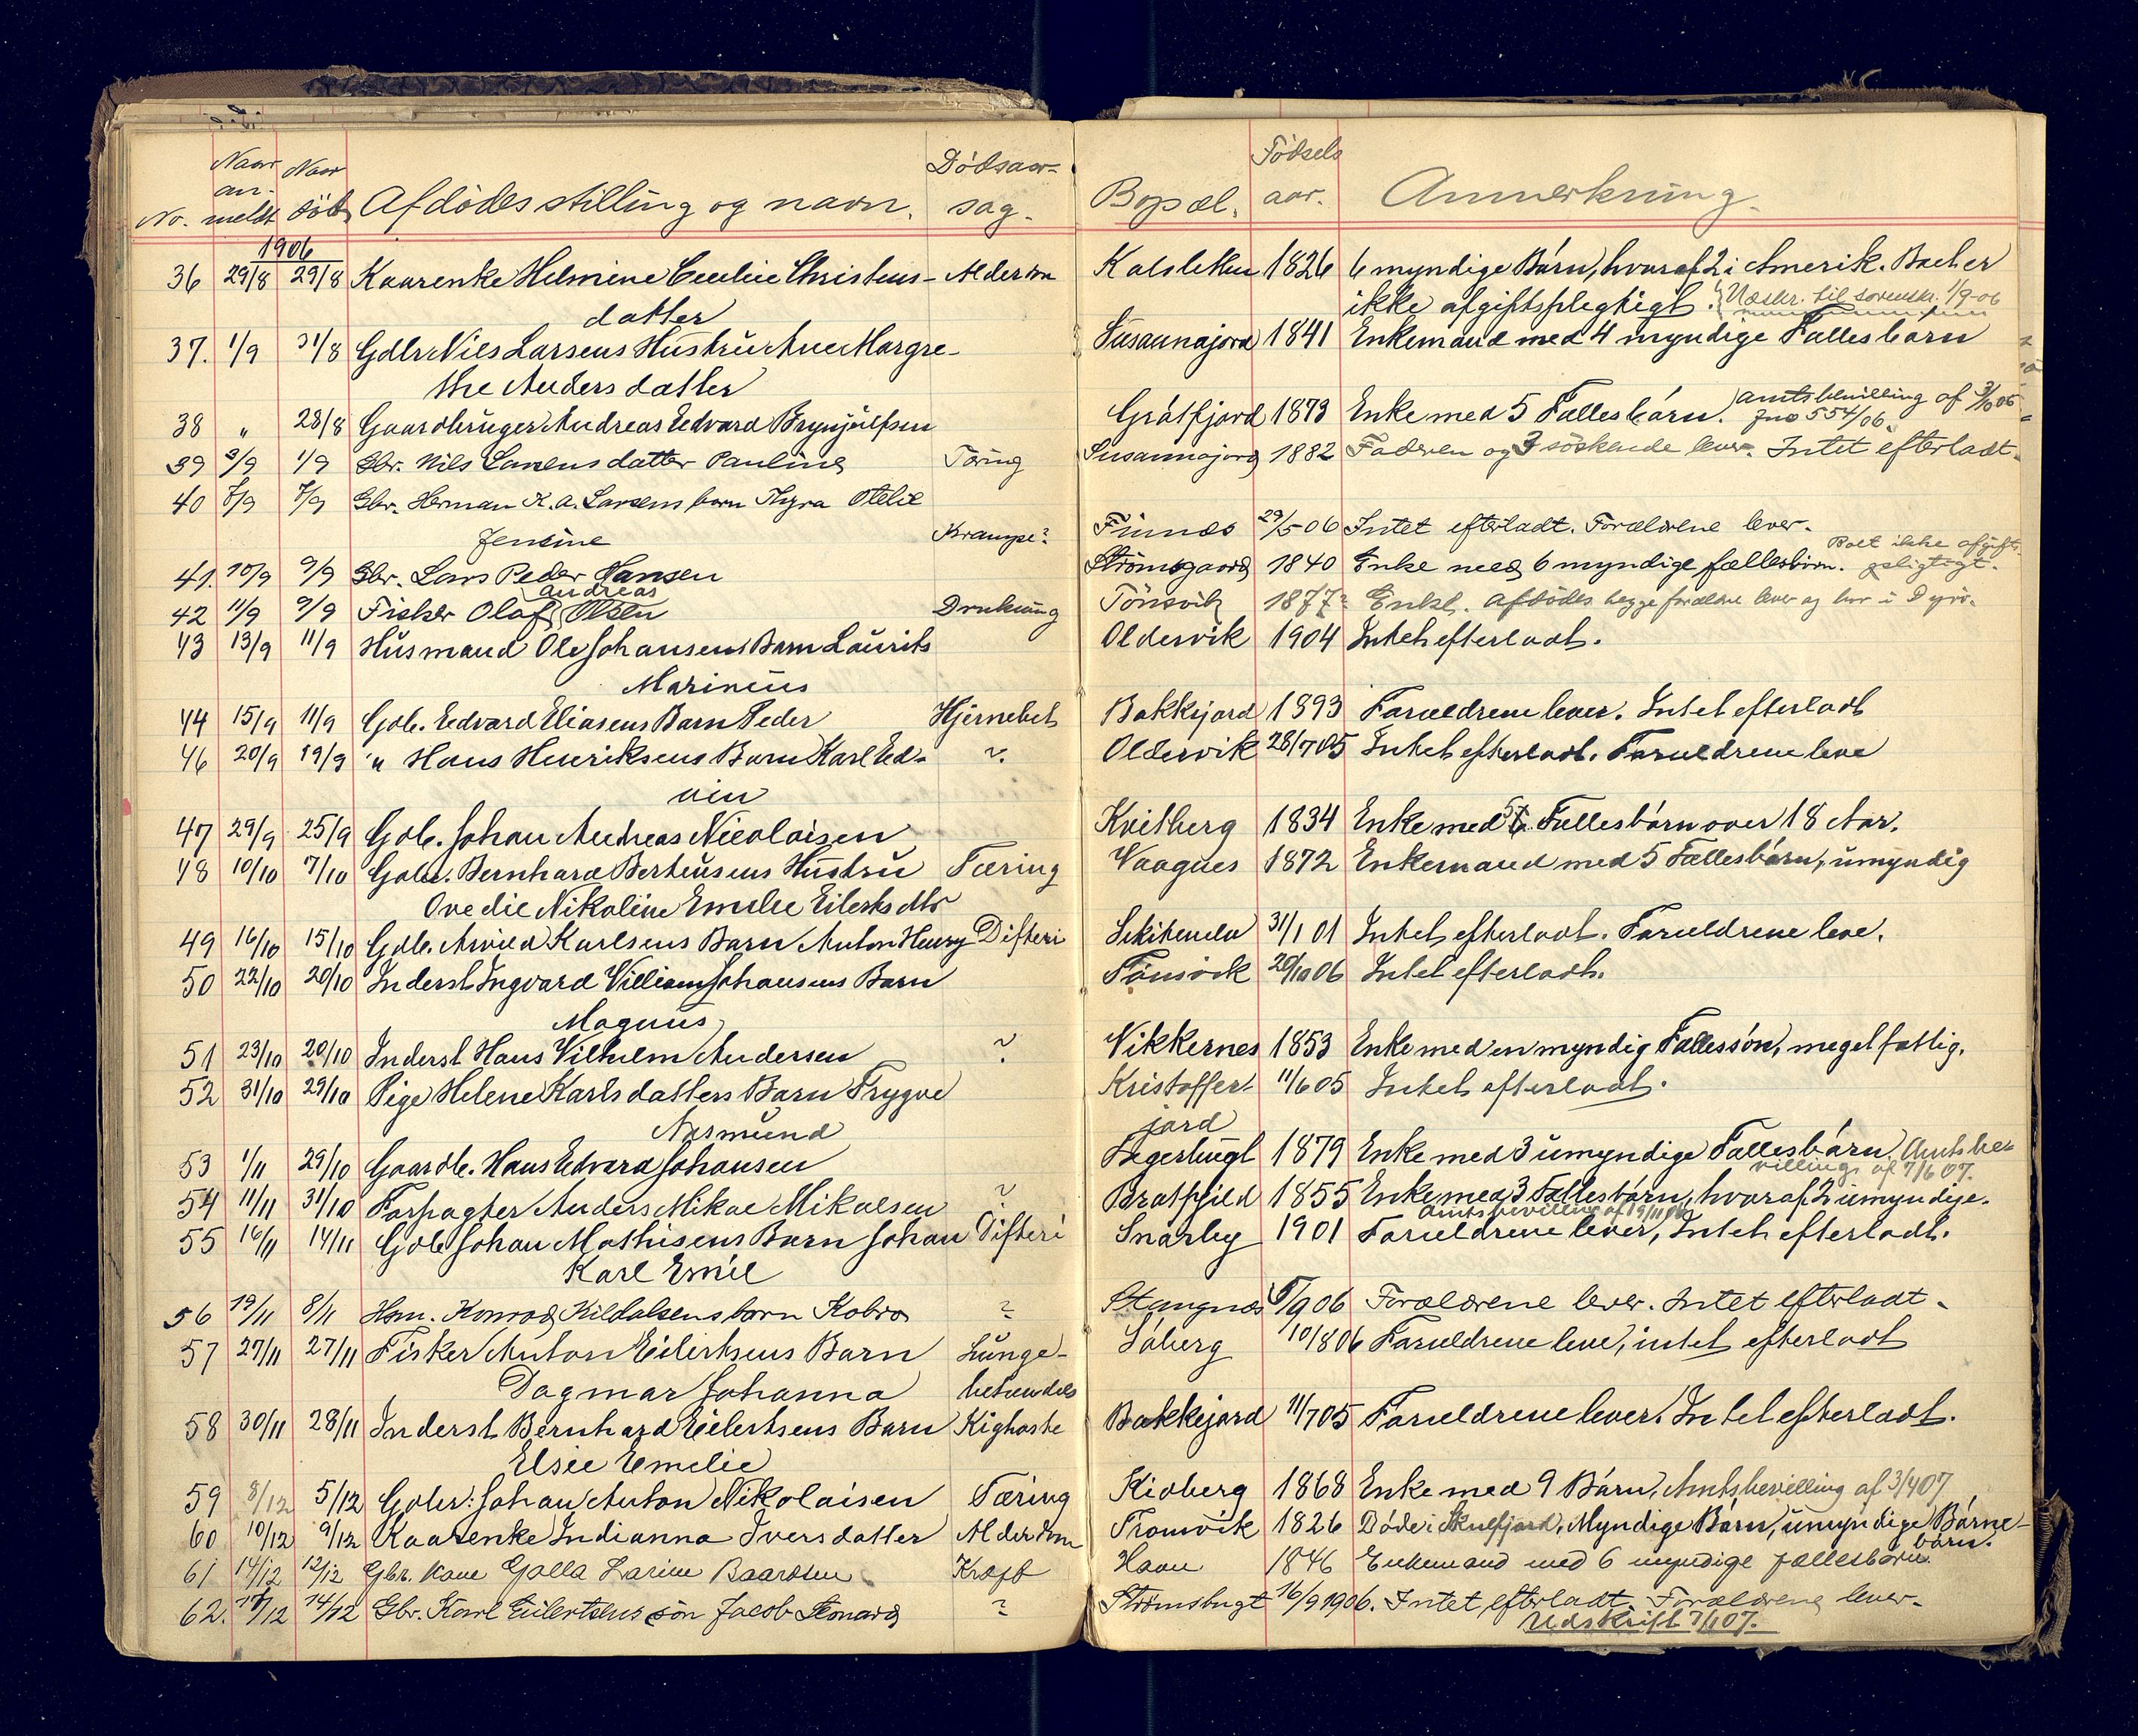 No. Naar an- meldt Naar död Afdödes stilling og navn. Dödsaar- sag. Bopæl. Födsels aar. Anmerkning.
1906
36 29/8 29/8 Kaarenke Helmine Christens- Alderdom 1826 6 myndige Börn, hvoraf 2 i Amerik. Boet er
datter ikke afgiftspligtigt. Udskr. til sorenskr. 1/9-06
37. 1/9 31/8 Gdbr Nils Larsens Hustru Ane Margre- Susannajord 1841 Enkemand med 4 myndige Fællesbörn
the Andersdatter
38 " 28/8 Gaardbruger Andreas Edvard Brynjulfsen Gråtfjord 1873 Enke med 5 Fællesbörn. Amtsbevilling af 3/10 06 Jno 554/06.
39 3/9 1/9 Gbr. Nils Larsens datter Pauline Tæring Susannajord 1882 Faderen og 3 söskende lever. Intet efterladt.
40 8/9 7/9 Gbr. Herman K. A. Larsens barn Thyra Otelie
Jensine Krampe? Finnes 29/5 06 Intet efterladt. Forældrene lever.
41. 10/9 9/9 Gbr. Lars Peder Hansen Strömsgaard 1840 Enke med 6 myndige fællesbörn. Boet ikke afgifts- pligtigt.
42 11/9 9/9 Fisker Olaf Andreas Olsen Drukning Tönsvik 1877? Enkel. Afdödes begge forældre lever og bor i Dyrö.
43 13/9 11/9 Husmand Ole Johansens Barn Laurits Oldervik 1904 Intet efterladt.
Marinius
44 15/9 11/9 Gdb. Edvard Eliasens Barn Peder Hjernebet Bakkejord 1893 Forældrene lever. Intet efterladt
46 20/9 19/9 " Hans Henriksens Barn Karl Ed- ?. Oldervik 28/7 05 Intet efterladt. Forældrene leve
vin
47 29/9 25/9 Gdb. Johan Andreas Nicolaisen Kvitberg 1834 Enke med 5 Fællesbörn over 18 Aar.
48 10/10 7/10 Gdbr. Bernhard Berteusens Hustru Tæring Vaagnes 1872 Enkemand med 5 Fællesbörn, umyndig
Ovedie Nikoline Emelie Eilerts dtr
49 16/10 15/10 Gdb. Arvid Karlsens Barn Anton Henry Difteri 31/1 01 Intet efterladt. Forældrene leve.
50 22/10 20/10 Inderst Ingvard Villiam Johansens Barn Tönsvik 20/10 06 Intet efterladt.
Magnus
51 23/10 20/10 Inderst Hans Vilhelm Andersen ?. Vikkernes 1853 Enke med en myndig Fællessön, meget fattig.
52 31/10 29/10 Pige Helene Karlsdatters Barn Trygve Kristoffer- 11/6 05 Intet efterladt.
Asmund jord
53 1/11 29/10 Gaardb. Hans Edvard Johansen 1879 Enke med 3 umyndige Fællesbörn Amtsbe- villing af 7/6 07.
54 11/11 31/10 Forpagter Anders Mikael Mikalsen ? Bratfjeld 1855 Enke med 3 Fællesbörn, hvoraf 2 umyndige.
Amtsbevilling af 19/11 06
55 16/11 14/11 Gdb Johan Mathisens Barn Johan Difteri Snarby 1901 Forældrene lever, Intet efterladt.
Karl Emil
56 19/11 8/11 Hsm. Konrad Kildalsens barn Kobro ? Stangnes 5/9 06 Forældrene lever. Intet efterladt.
57 27/11 27/11 Fisker Anton Eilertsens Barn Lunge- Låberg 10/8 06 Forældrene leve, intet efterladt
Dagmar Johanna betændels
58 30/11 28/11 Inderst Bernhard Eilertsens Barn Kighoste Bakkejord 11/7 05 Forældrene lever. Intet efterladt.
Elsie Emelie
59 8/12 5/12 Gdbr: Johan Anton Nikolaisen Tæring Kvberg 1868 Enke med 9 Börn, Amtsbevilling af 3/4 07
60 10/12 9/12 Kaarenke Indianna Iversdatter Alderdom Tromvik 1826 Döde i Skulsfjord, Myndige Börn, umyndige Börne-
börn.
61 14/12 12/12 Gbr. kone Gjalla Larine Baardsen Kræft Havn 1846 Enkemand med 6 myndige fællesbörn.
62. 17/12 14/12 Gbr. Karl Eilertsens sön Jacob Leonard ? Strömsbugt 16/9 1906. Intet efterladt. Forældrene lever.
Udskrift 7/1 07.